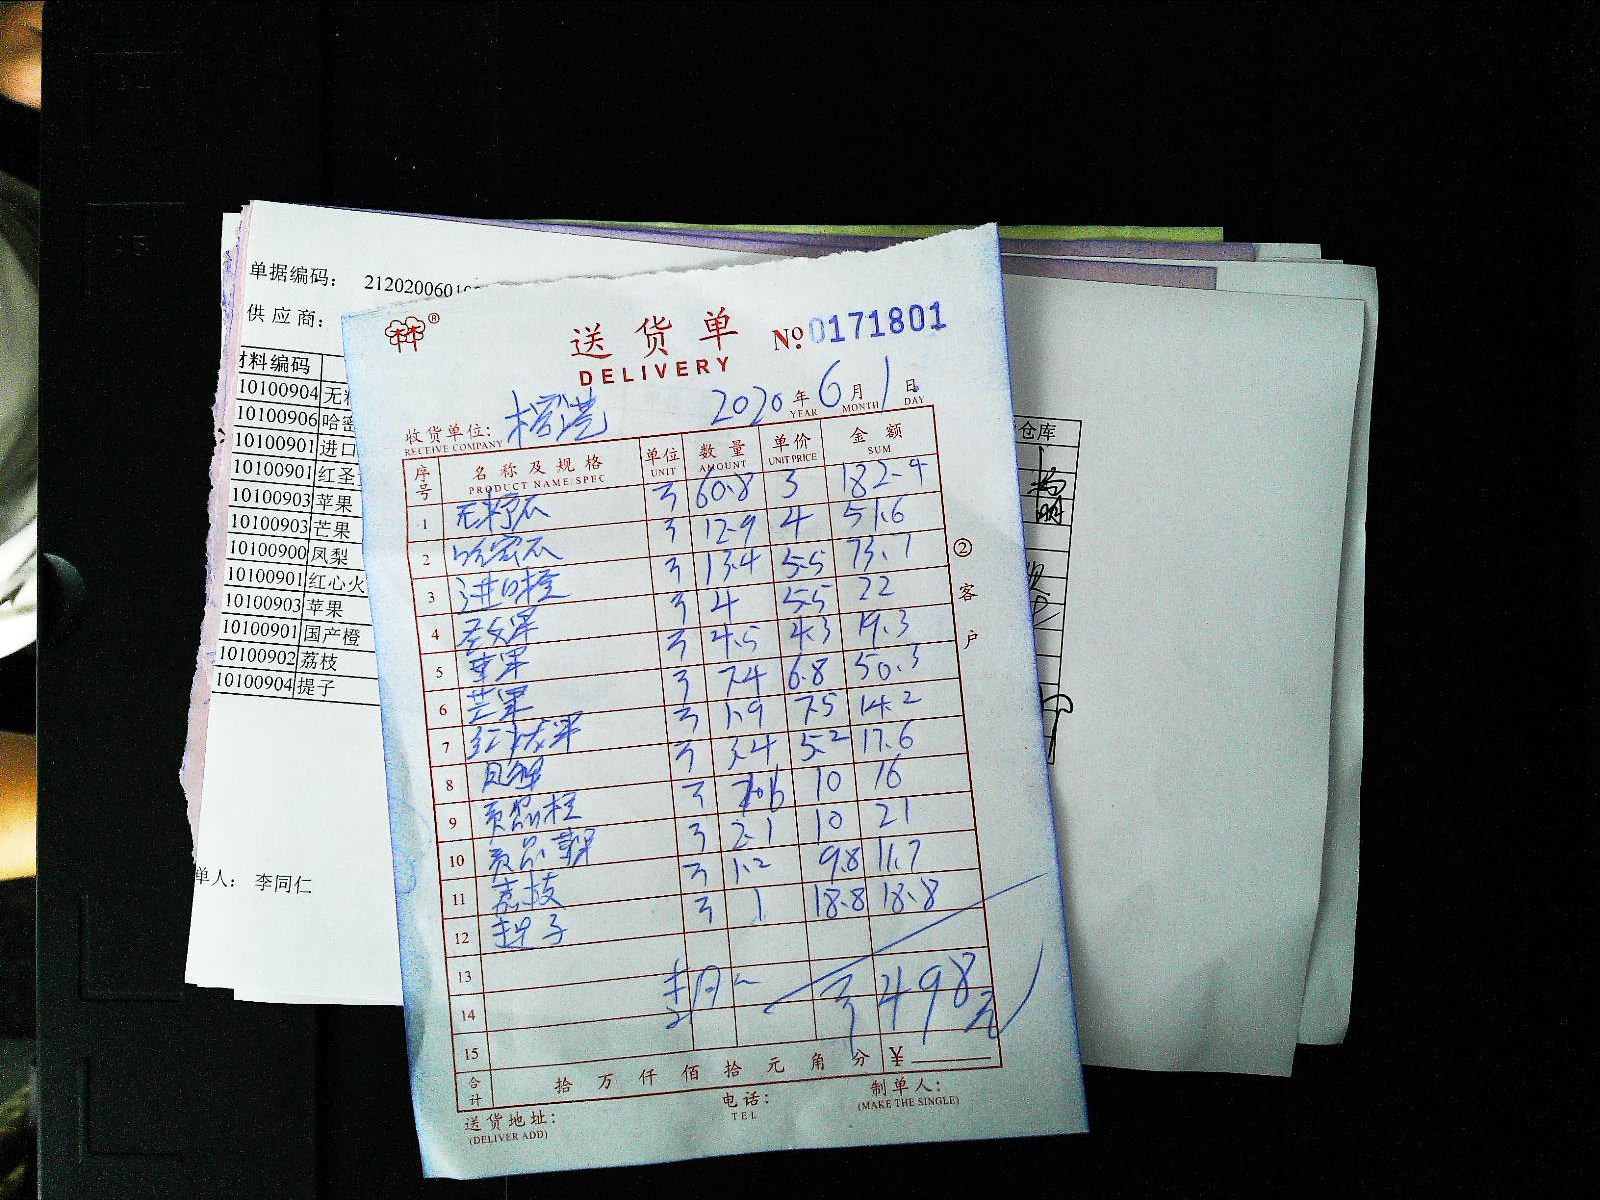 单据编码： 212020060100
供应商：
材料编码
10100904 无籽
10100906 哈密
10100901 进口
10100901 红圣
10100903 苹果
10100903 芒果
10100900 凤梨
10100901 红心火
10100903 苹果
10100901 国产橙
10100902 荔枝
10100904 提子
单人： 李同仁
仓库
林林®
送货单 №0171801
DELIVERY
2020 年 6 月 1 日
YEAR MONTH DAY
收货单位：
RECEIVE COMPANY
序号 名称及规格 单位 数量 单价 金额
PRODUCT NAME/SPEC UNIT AMOUNT UNIT PRICE SUM
1 无籽瓜 斤 60.8 3 182.4
2 哈密瓜 斤 12.9 4 51.6
3 进口橙 斤 13.4 5.5 73.7
4 圣女果 斤 4 5.5 22
5 苹果 斤 4.5 4.3 19.3
6 芒果 斤 7.4 6.8 50.3
7 红心火龙果 斤 1.9 7.5 14.2
8 凤梨 斤 3.4 5.2 17.6
9 贡品橙 斤 1.6 10 16
10 贡品苹果 斤 2.1 10 21
11 荔枝 斤 1.2 9.8 11.7
12 提子 斤 1 18.8 18.8
13
14
498元
15
合计 拾 万 仟 佰 拾 元 角 分 ¥
送货地址： 电话： 制单人：
(DELIVER ADD) TEL (MAKE THE SINGLE)
②客户